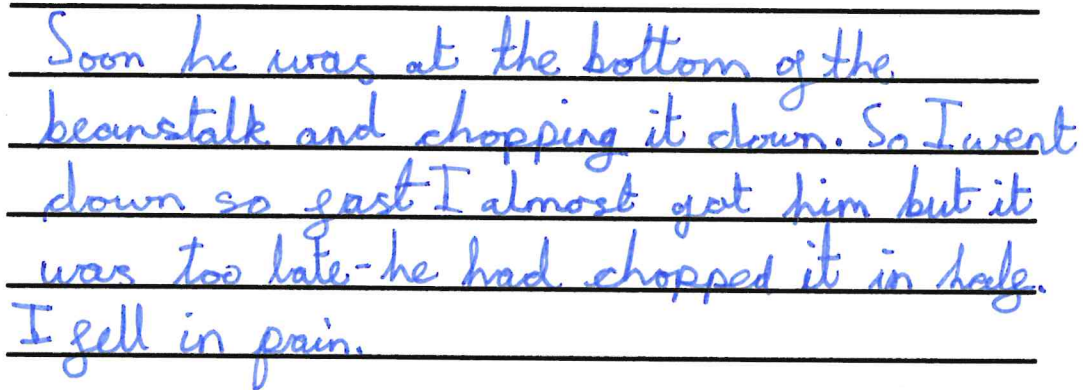 Soon he was at the bottom of the
beanstalk and chopping it down. So I went
down so fast I almost got him but it
was too late-he had chopped it in half.
I fell in pain.